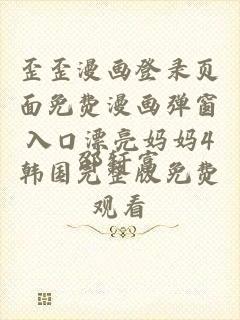 歪歪漫画登录页
面免费漫画弹窗
入口漂亮妈妈4
韩国完整版免费
观看